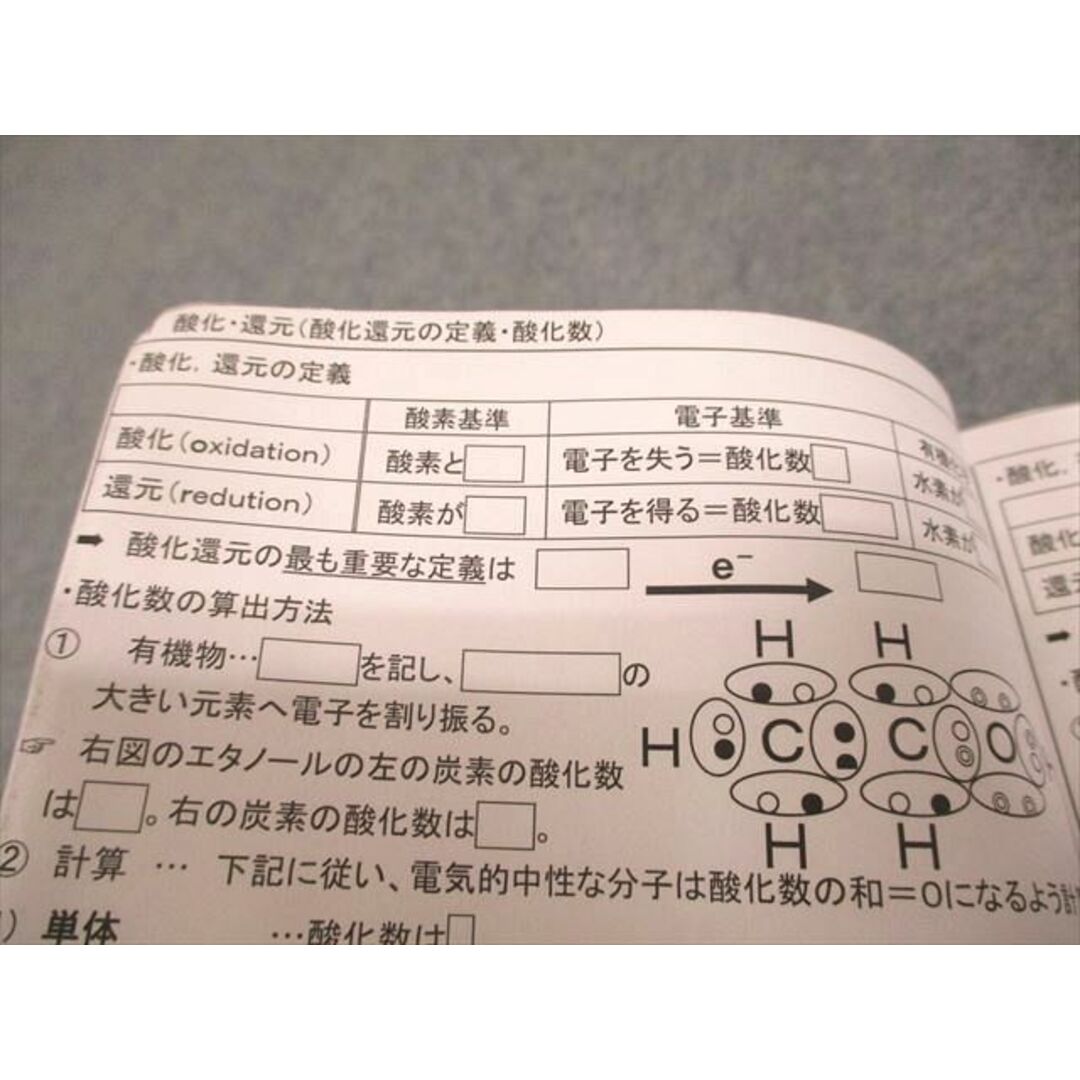 酸化・還元(酸化還元の定義・酸化数)
・酸化, 還元の定義
酸素基準 電子基準
酸化(oxidation) 酸素と 電子を失う=酸化数 水素が
還元(redution) 酸素が 電子を得る=酸化数 水素が
➡ 酸化還元の最も重要な定義は e⁻
・酸化数の算出方法
① 有機物…を記し、の
大きい元素へ電子を割り振る。
☞ 右図のエタノールの左の炭素の酸化数
は。右の炭素の酸化数は。
H H
H C C O
H H
② 計算 … 下記に従い、電気的中性な分子は酸化数の和=0になるよう計
単体 …酸化数は
・酸化,
酸化
還元
➡